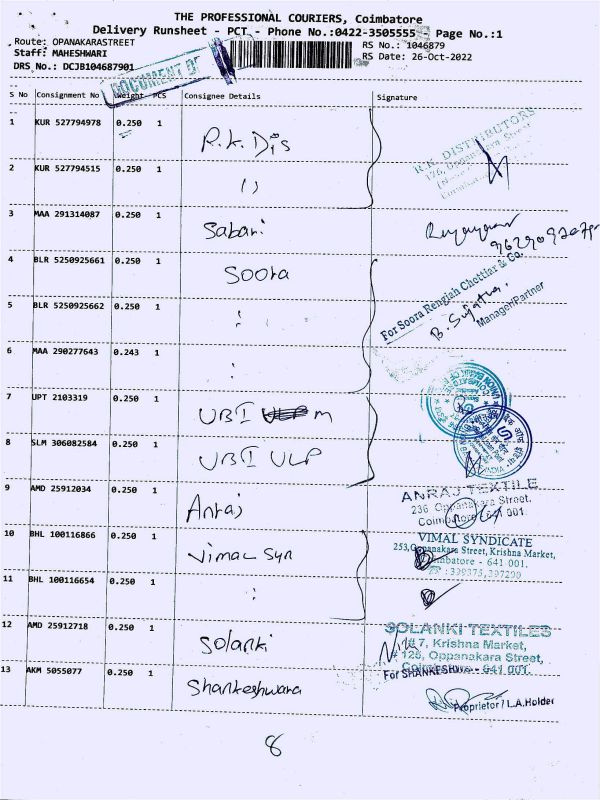 THE PROFESSIONAL COURIERS, Coimbatore
Delivery Runsheet - PCT - Phone No.:0422-3505555 - Page No.:1
Route: OPANAKARASTREET
RS No.: 1046879
Staff: MAHESHWARI
RS Date: 26-Oct-2022
DRS No.: DCJB104687901
DOCUMENT OF
S No Consignment No Weight PCS Consignee Details Signature
1 KUR 527794978 0.250 1 R.K. Dis
R.K. DISTRIBUTORS
176, Oppanakara Street
2 KUR 527794515 0.250 1 ''
3 MAA 291314087 0.250 1 Sabari
4 BLR 5250925661 0.250 1 Soora
For Soora Rengiah Chettiar & Co.
B. Sujatha.
Manager/Partner
5 BLR 5250925662 0.250 1 :
6 MAA 290277643 0.243 1 :
7 UPT 2103319 0.250 1 UBI M
8 SLM 306082584 0.250 1 UBI ULP
9 AMD 25912034 0.250 1 Anraj
ANRAJ TEXTILE
236 Oppanakara Street,
Coimbatore - 641 001.
10 BHL 100116866 0.250 1 Vimal Syn
VIMAL SYNDICATE
253, Oppanakara Street, Krishna Market,
Coimbatore - 641 001.
11 BHL 100116654 0.250 1 :
12 AMD 25912718 0.250 1 Solanki
SOLANKI TEXTILES
# 7, Krishna Market,
# 126, Oppanakara Street,
Coimbatore - 641 001.
13 AKM 5055077 0.250 1 Shankeshwara
For SHANKESHWA
Proprietor / L.A.Holder
8